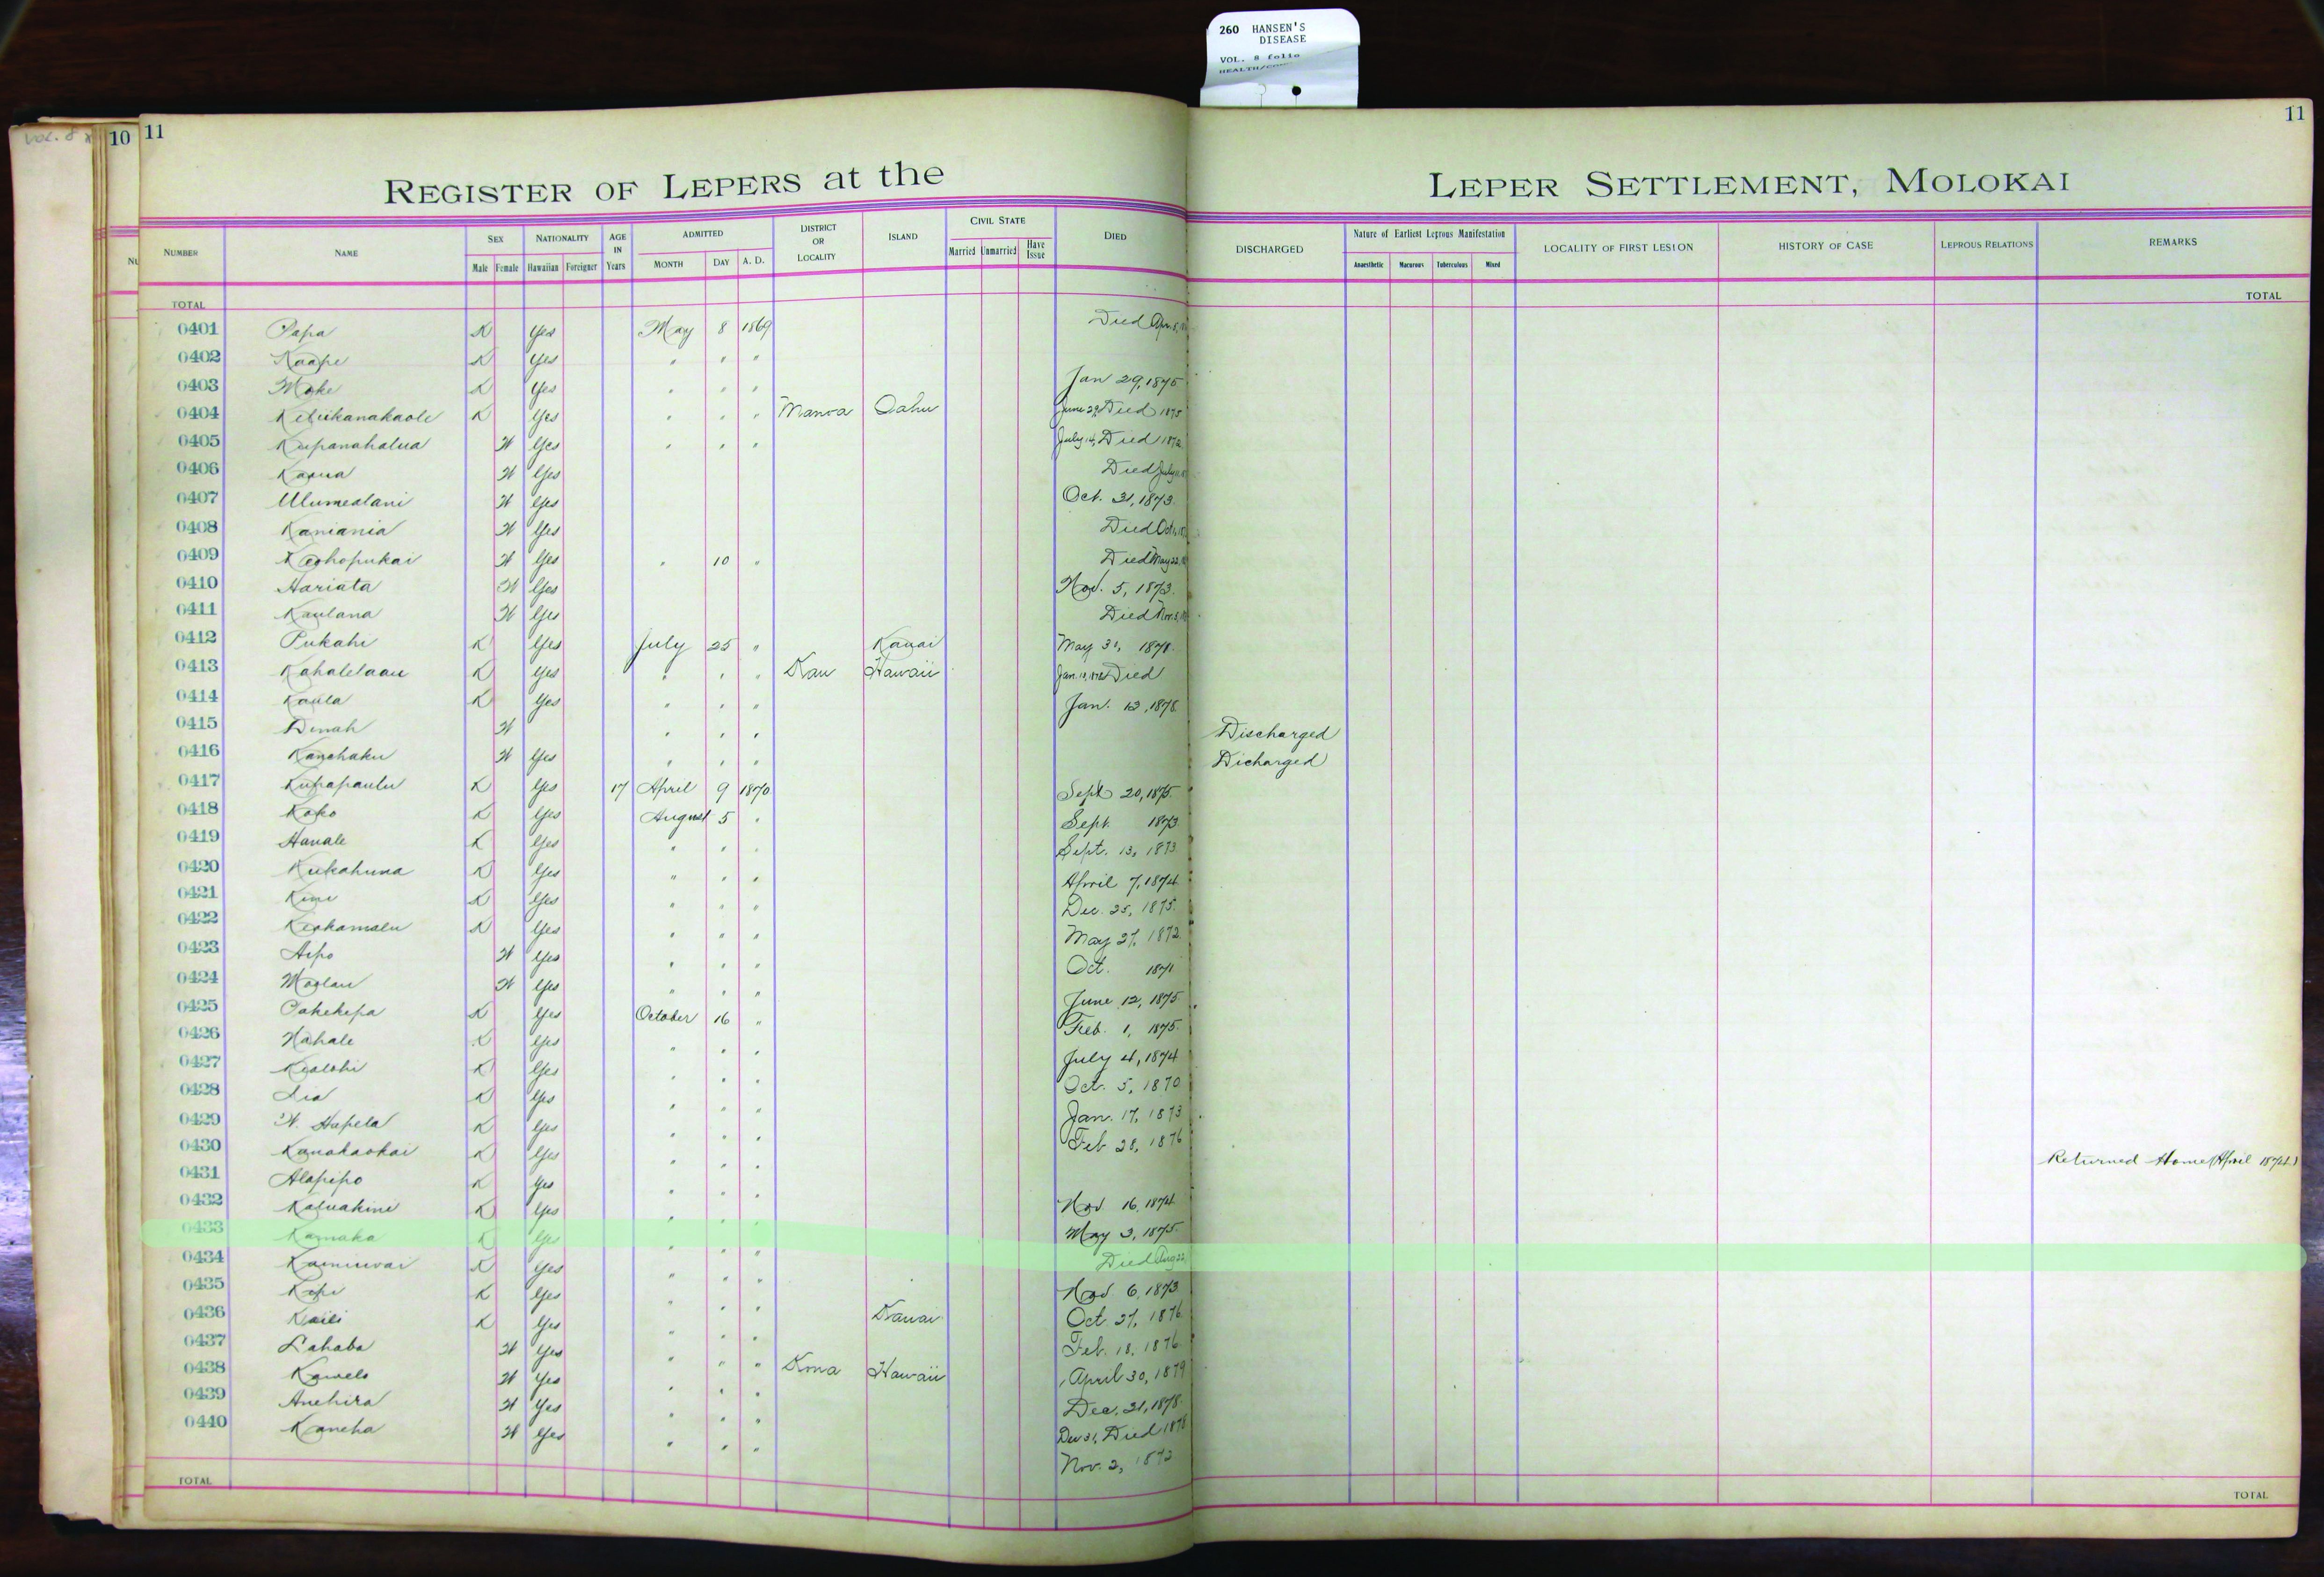 260 HANSEN'S
DISEASE
VOL. 8 folio
VOL. 8
10 11
11
REGISTER OF LEPERS at the LEPER SETTLEMENT, MOLOKAI
NUMBER NAME SEX NATIONALITY AGE IN Years ADMITTED DISTRICT OR LOCALITY ISLAND CIVIL STATE DIED DISCHARGED Nature of Earliest Leprous Manifestation LOCALITY OF FIRST LESION HISTORY OF CASE LEPROUS RELATIONS REMARKS
Male Female Hawaiian Foreigner MONTH DAY A. D. Married Unmarried Have Issue Anaesthetic Macurous Tuberculous Mixed
TOTAL TOTAL
0401 Papa K Yes May 8 1869 Died Apr. 8,
0402 Kaape K Yes " " "
0403 Moke K Yes " " " Jan 29, 1875
0404 Keliikanakaole K Yes " " " Manoa Oahu June 29, Died 1875
0405 Kupanahalua W Yes " " " July 14, Died 1872
0406 Kaaua W Yes Died July
0407 Ulumealani W Yes Oct. 31, 1873.
0408 Kaniania W Yes Died Oct.
0409 Keohopukai W Yes " 10 " Died May 22,
0410 Hariata W Yes Nov. 5, 1873.
0411 Kaulana W Yes Died Nov. 5,
0412 Pukahi K Yes July 25 " Kauai May 31, 1871.
0413 Kahalelaau K Yes " " " Kau Hawaii Died
0414 Kaula K Yes " " " Jan. 13, 1878.
0415 Dinah W " " " Discharged
0416 Kanehaku W Yes " " " Dicharged
0417 Kupapaulu K Yes 17 April 9 1870 Sept 20, 1875.
0418 Koko K Yes August 5 " Sept. 1873
0419 Hanale K Yes " " " Sept. 13, 1873
0420 Kukahuna K Yes " " " April 7, 1874
0421 Kini K Yes " " " Dec. 25, 1875.
0422 Keakamalu K Yes " " " May 27, 1872
0423 Aipo W Yes " " " Oct. 1871
0424 Moolau W Yes " " " June 12, 1875
0425 Pakekepa K Yes October 16 " Feb. 1, 1875.
0426 Nahale K Yes " " " July 4, 1874
0427 Kealohi K Yes " " " Oct. 5, 1870
0428 Lia K Yes " " " Jan. 17, 1873
0429 W. Hapela K Yes " " " Feb 28, 1876
0430 Kanakaokai K Yes " " " Returned Home (April 1874.)
0431 Alapipo K Yes " " " Nov 16, 1874
0432 Kaluakini K Yes " " " May 3, 1875.
0433 Kamaka K Yes " " " Died Aug 22,
0434 Kainiwai K Yes " " " Nov. 6, 1873
0435 Kepi K Yes " " " Oct. 27, 1876
0436 Kaili K Yes " " " Kauai Feb. 18, 1876
0437 Lahaba W Yes " " " April 30, 1879
0438 Kawelo W Yes " " " Kona Hawaii Dec. 31, 1878.
0439 Anehira W Yes " " " Dec 31, Died 1878
0440 Kaneha W Yes " " " Nov. 2, 1872
TOTAL TOTAL